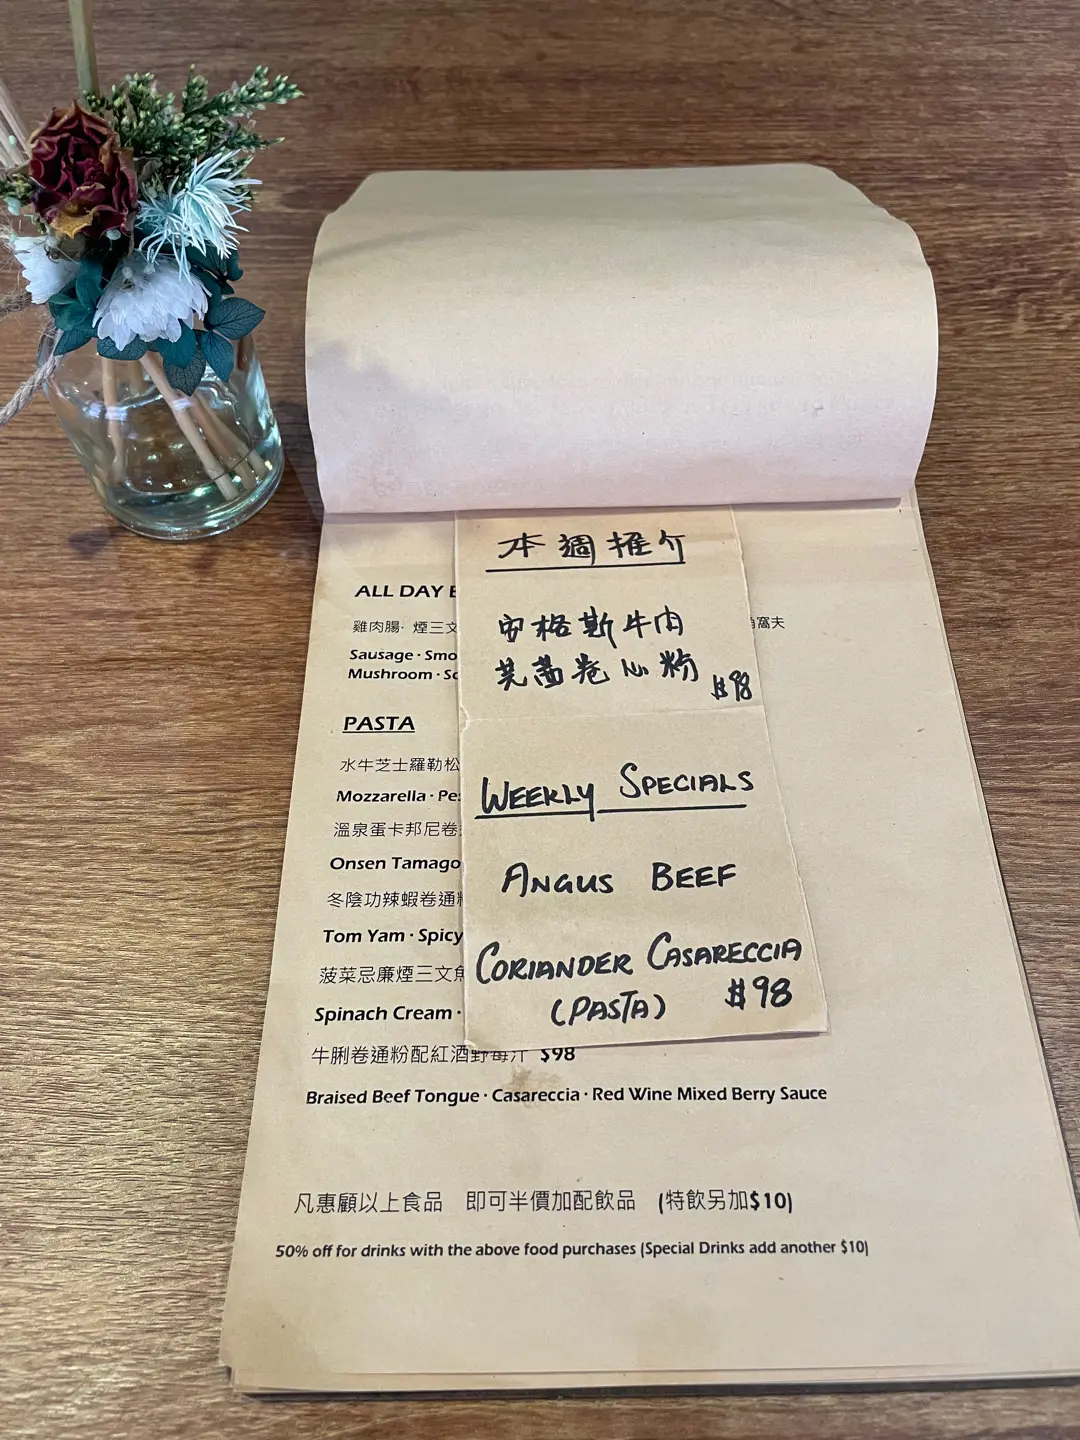 本週推介
安格斯牛肉
芫茜卷心粉 $98
WEEKLY SPECIALS
ANGUS BEEF
CORIANDER CASARECCIA
(PASTA) $98
ALL DAY
雞肉腸· 煙三文 窩夫
Sausage · Smo
Mushroom ·
PASTA
水牛芝士羅勒松
Mozzarella · Pe
溫泉蛋卡邦尼卷
Onsen Tamago
冬陰功辣蝦卷通粉
Tom Yam · Spicy
菠菜忌廉煙三文魚
Spinach Cream ·
牛脷卷通粉配紅酒野莓汁 $98
Braised Beef Tongue · Casareccia · Red Wine Mixed Berry Sauce
凡惠顧以上食品 即可半價加配飲品 (特飲另加$10)
50% off for drinks with the above food purchases (Special Drinks add another $10)